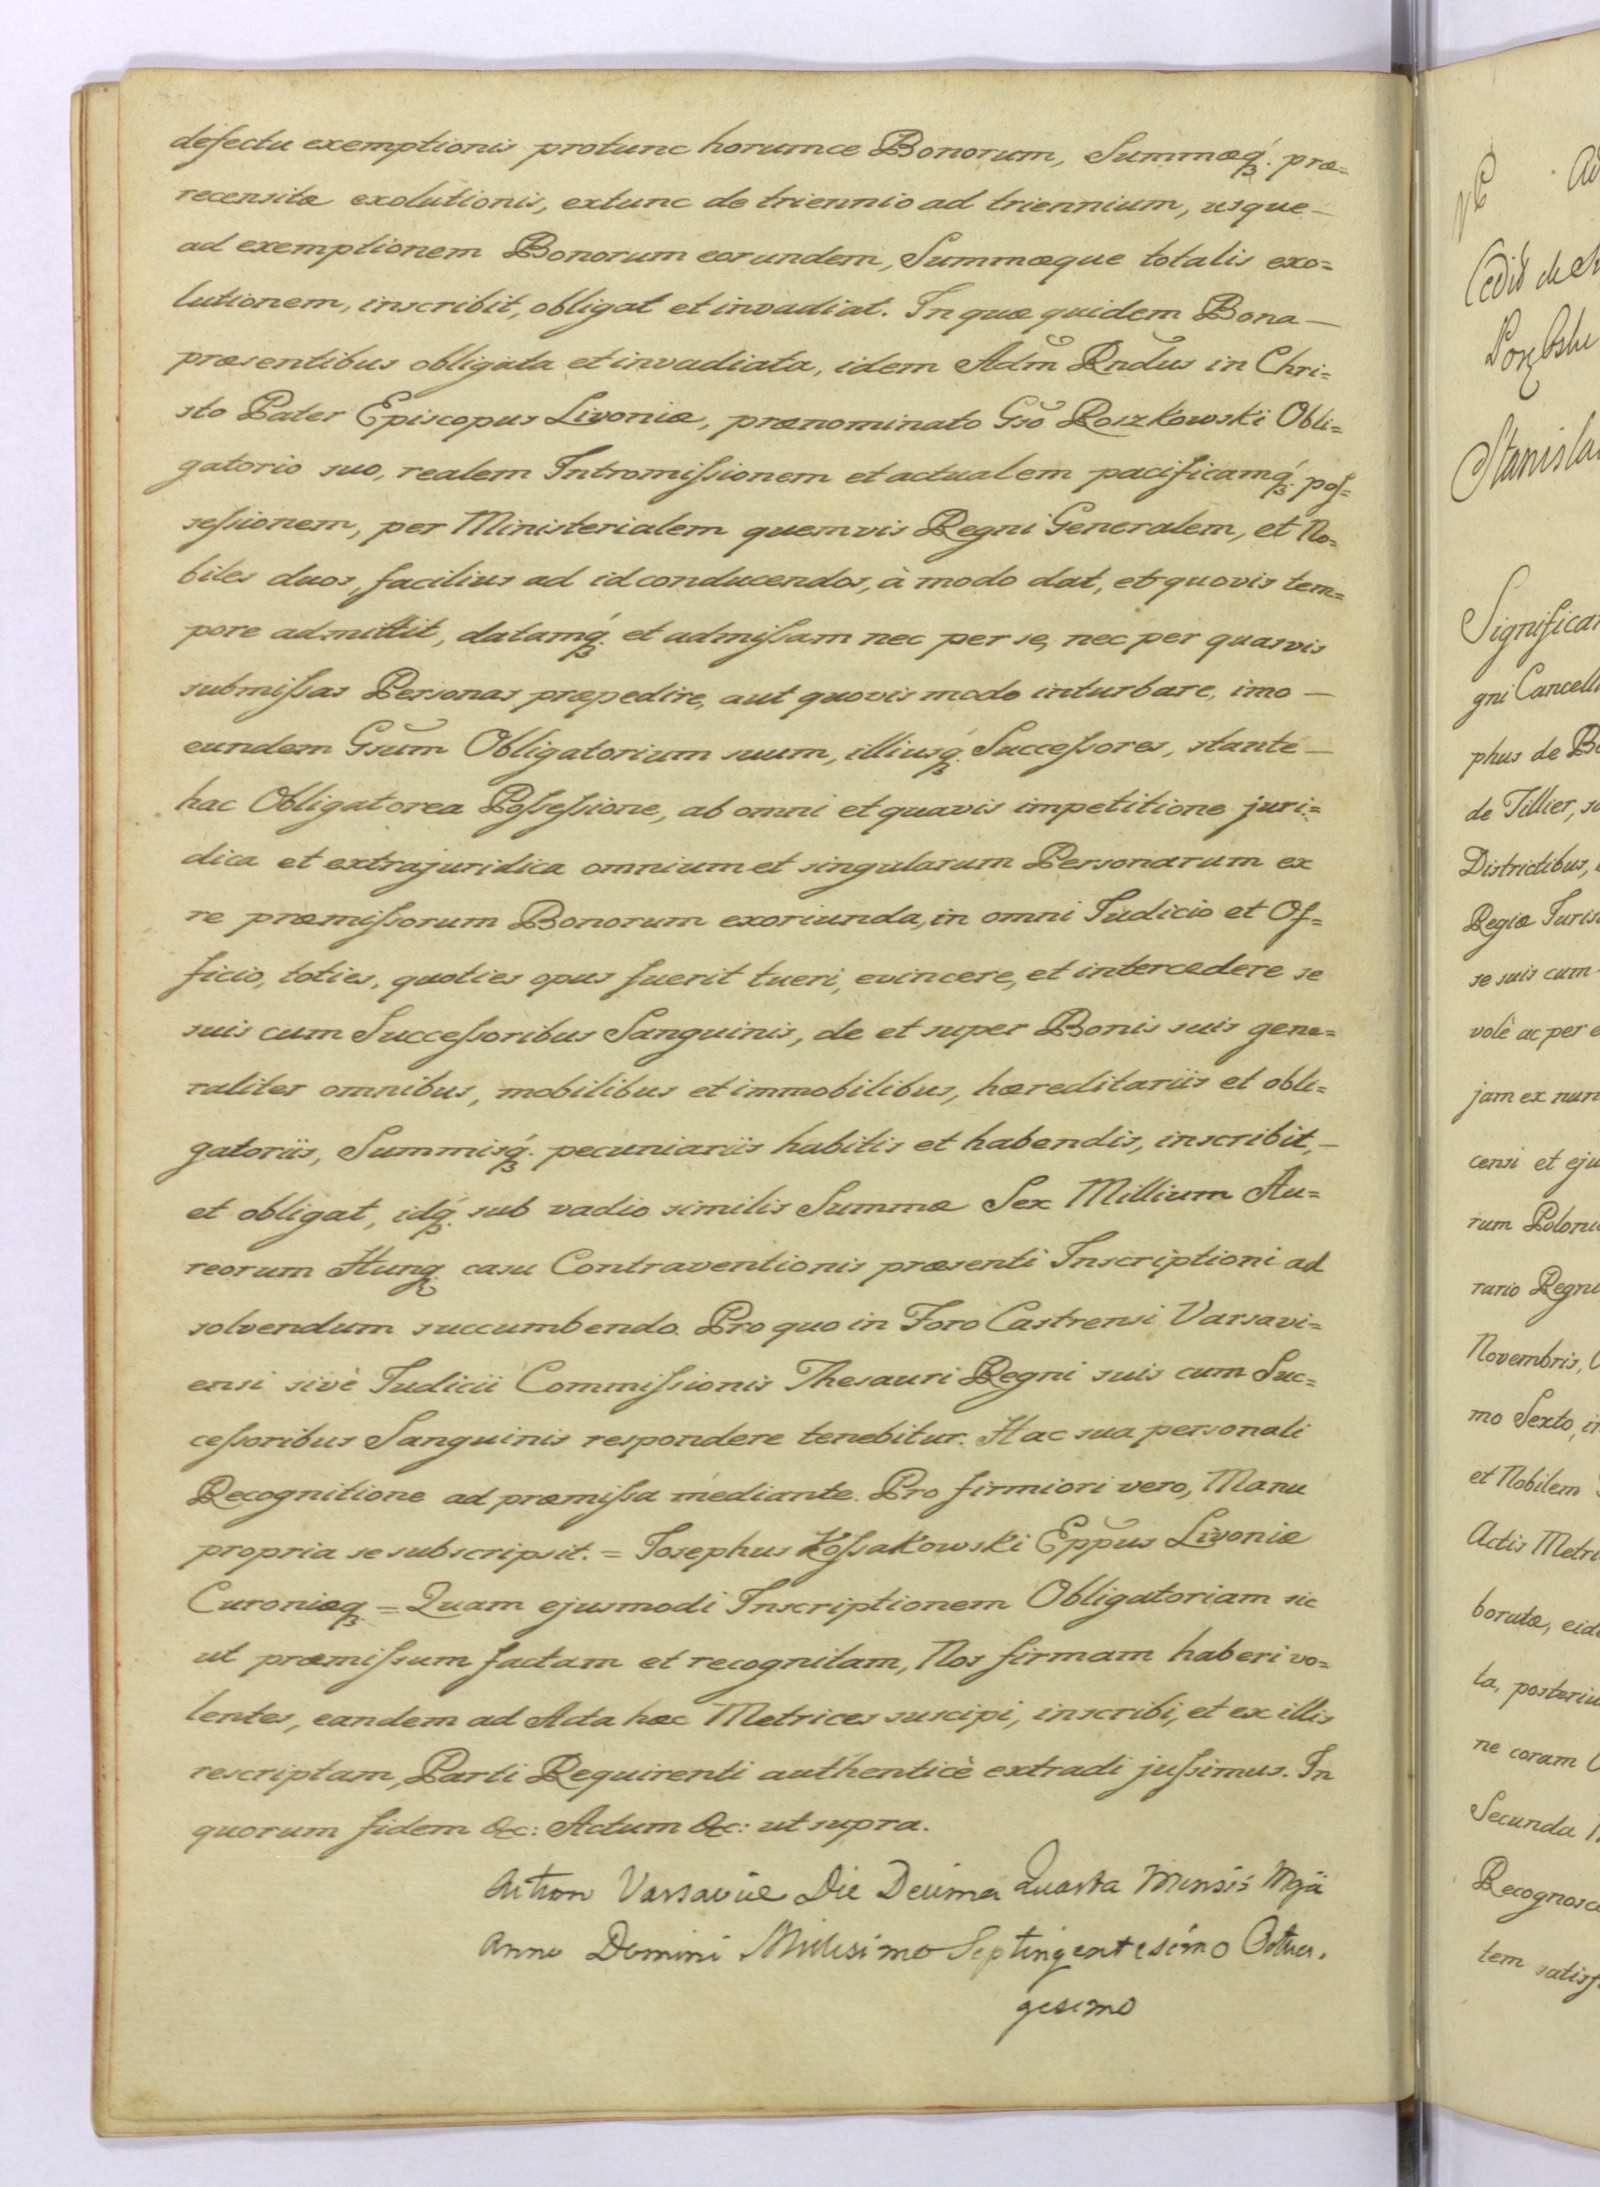 defectu exemptionis protunc horumce Bonorum, Summæq́ꝫ. præ=
recensitæ exolutionis, extunc de triennio ad triennium, usque—
ad exemptionem Bonorum eorundem, Summæque totalis exo=
lutionem, inscribit, obligat et invadiat. In quæ quidem Bona—
præsentibus obligata et invadiata, idem Adm̃ Rndũs in Chri=
sto Pater Episcopus Livoniæ, prænominato Gsõ Roszkowski Obli=
gatorio suo, realem Intromiſsionem et actualem pacificamq́ꝫ. poſ=
seſsionem, per Ministerialem quemvis Regni Generalem, et No=
biles duos, facilius ad id conducendos, à modo dat, et quovis tem=
pore admittit, datamq́ꝫ. et admiſsam nec per se, nec per quasvis
submiſsas Personas præpedire, aut quovis modo inturbare, imo—
eundem Gsũm Obligatorium suum, illiusq́ꝫ. Succeſsores, stante—
hac Obligatorea Poſseſsione, ab omni et quavis impetitione juri=
dica et extrajuridica omnium et singularum Personarum ex
re præmiſsorum Bonorum exoriunda, in omni Judicio et Of=
ficio, toties, quoties opus fuerit tueri, evincere, et intercedere se
suis cum Succeſsoribus Sanguinis, de et super Bonis suis gene=
raliter omnibus, mobilibus et immobilibus, hæreditariis et obli=
gatoriis, Summisq́ꝫ. pecuniariis habitis et habendis, inscribit,—
et obligat, idq́ꝫ. sub vadio similis Summæ Sex Millium Au=
reorum Hung. casu Contraventionis præsenti Inscriptioni ad
solvendum succumbendo. Pro quo in Foro Castrensi Varsavi=
ensi sivè Judicii Commiſsionis Thesauri Regni suis cum Suc=
ceſsoribus Sanguinis respondere tenebitur. Hac sua personali
Recognitione ad præmiſsa mediante. Pro firmiori vero, Manu
propria se subscripsit. = Josephus Koſsakowski Epp̃us Livoniæ
Curoniæqꝫ = Quam ejusmodi Inscriptionem Obligatoriam sic
ut præmiſsum factam et recognitam, Nos firmam haberi vo=
lentes, eandem ad Acta hæc Metrices suscipi, inscribi, et ex illis
rescriptam, Parti Requirenti authenticè extradi juſsimus. In
quorum fidem &c: Actum &c: ut supra.
Actum Varsaviæ Die Decima Quarta Mensis Maji
Anno Domini Millesimo Septingentesimo Octua.
gesimo
Cedit de
Stanisla
Significa
gni Cancell
phus de
de Tillier,
Districtibus,
Regiæ Juris
se suis cum
volè ac per e
jam ex nun
censi et eju
rum Polon
rario Regni
Novembris,
mo Sexto, in
et Nobilem
Actis Metri
boratæ, eid
ta, posteriu
ne coram
Secunda
Recognosc
tem satisf